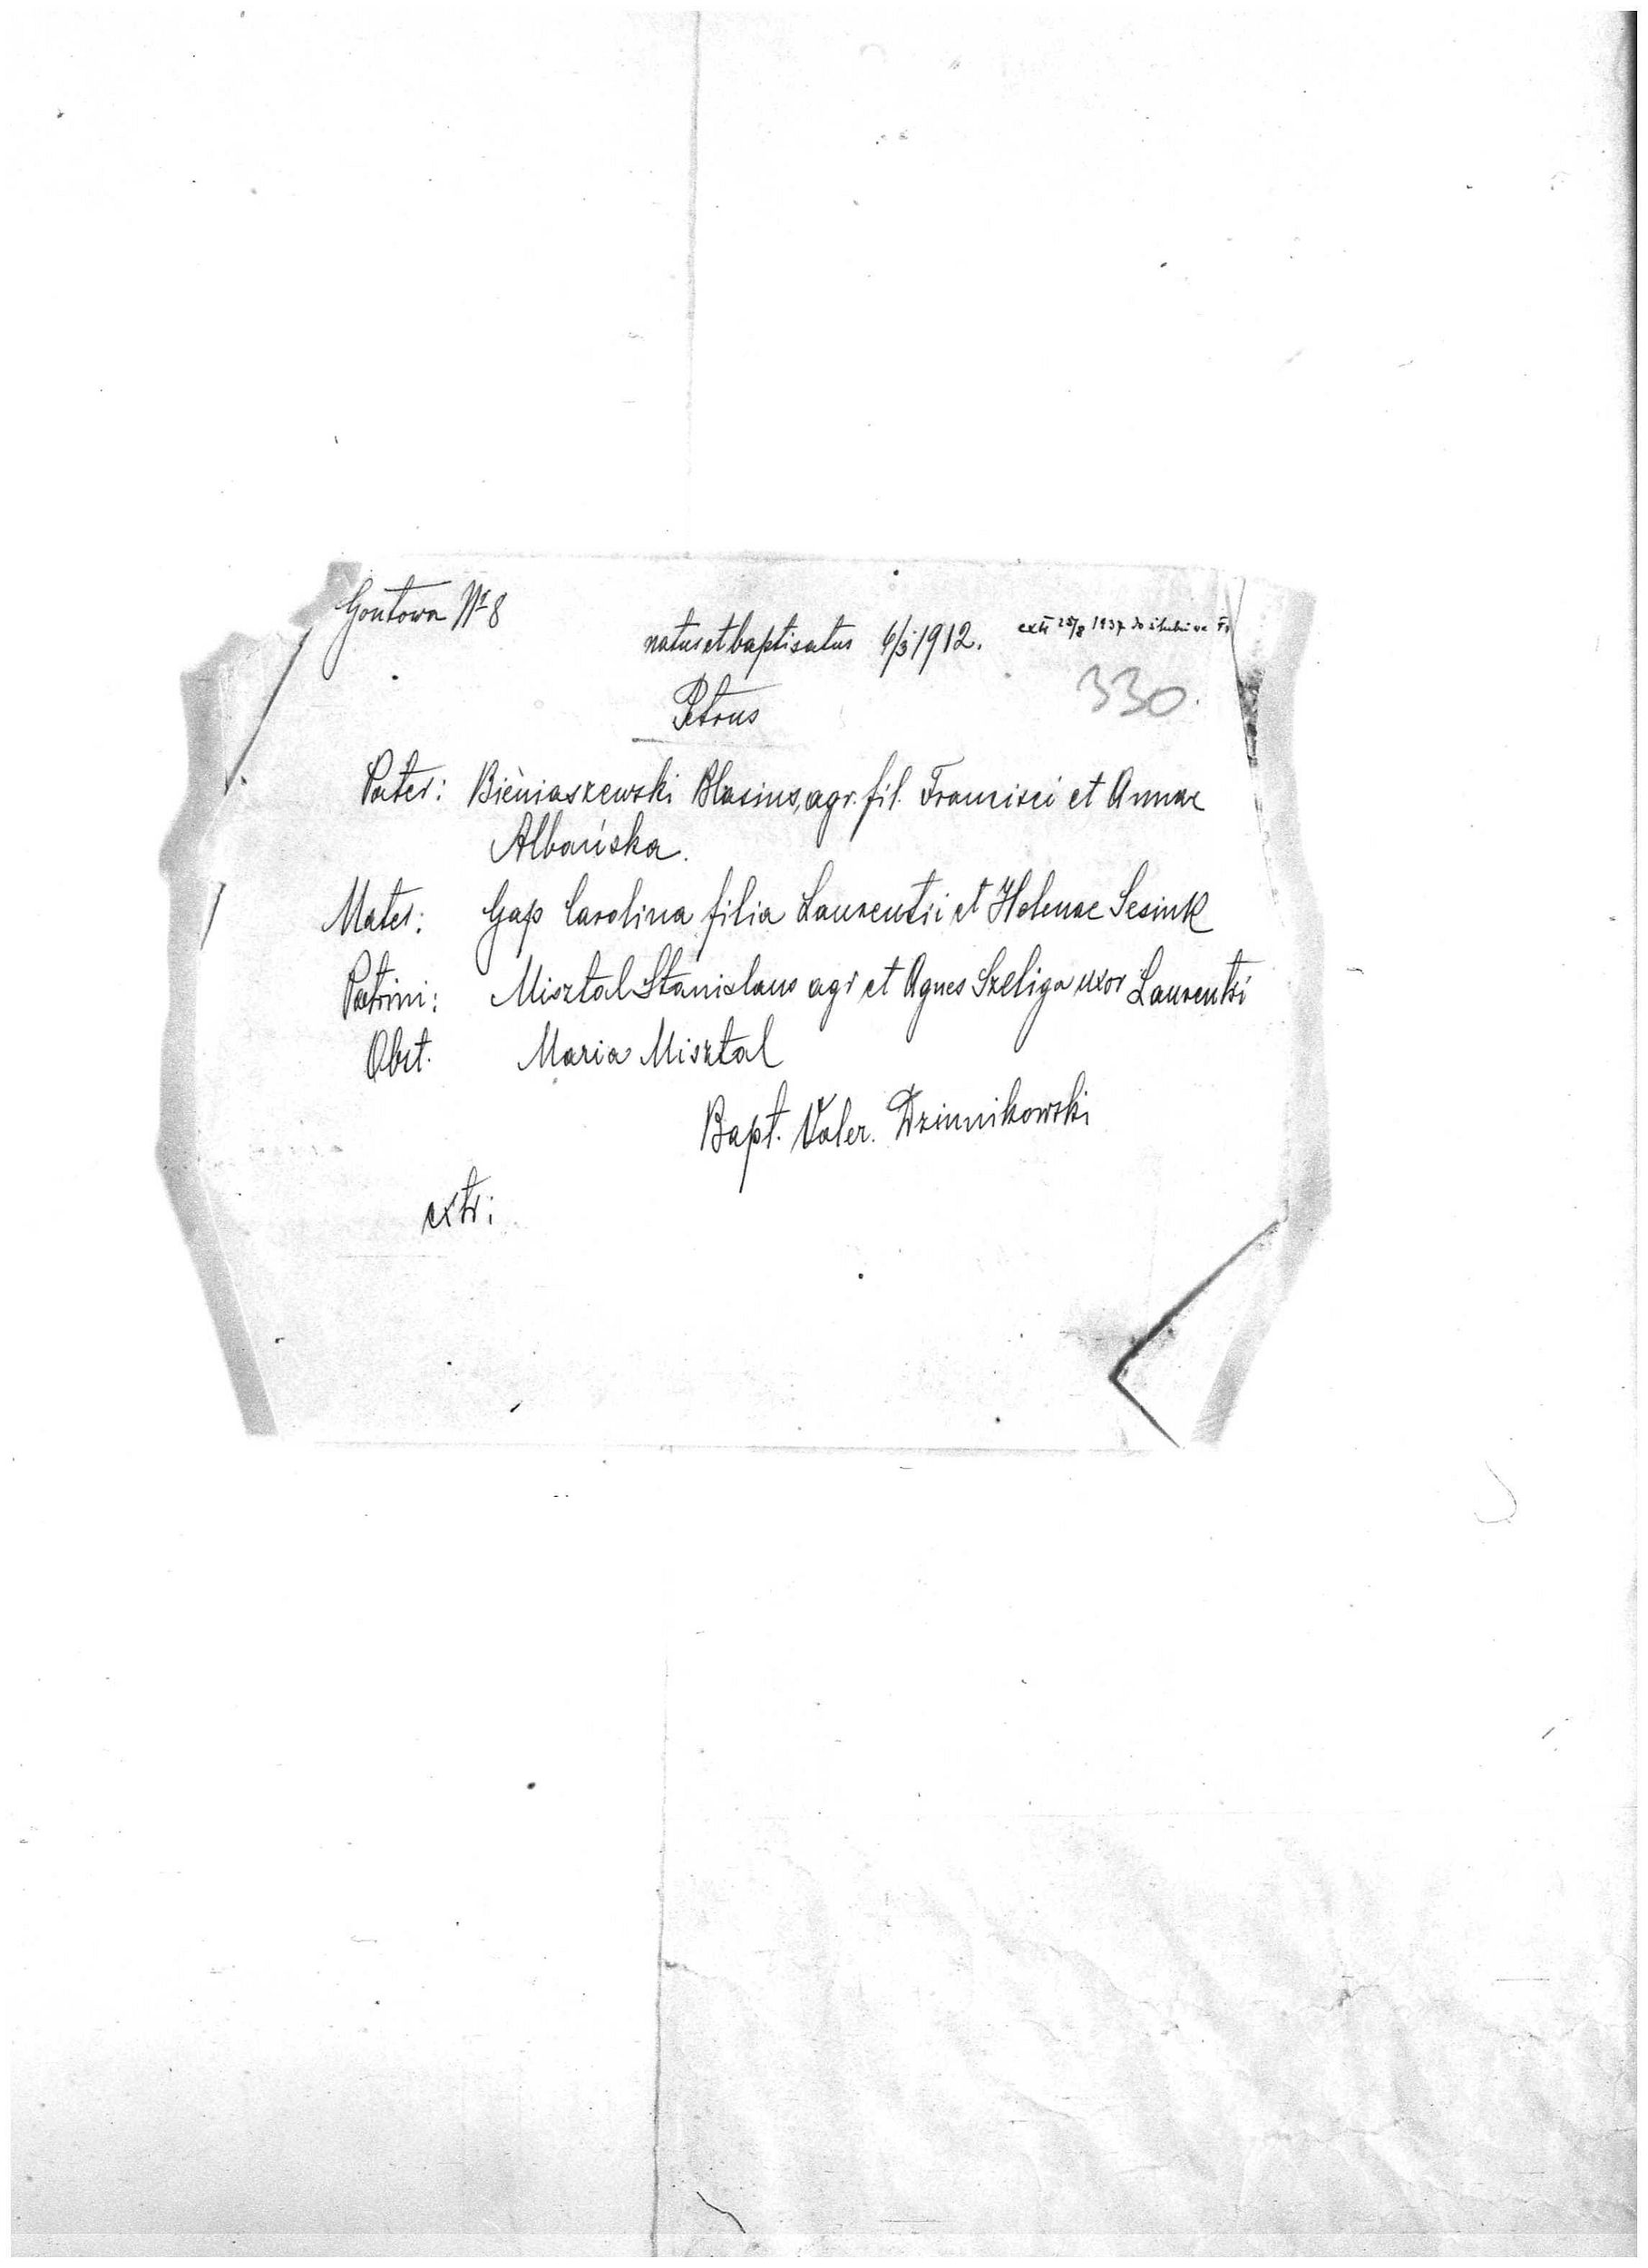 Gontowa Nr 8
natus et baptisatus 6/3 1912. extr 28/8 1937 do ślubu
330.
Petrus
Pater: Bieniaszewski Blasius, agr. fil. Francisci et Annae
Albańska.
Mater: Gap Carolina filia Laurentii et Helenae
Patrini: Misztal Stanislaus agr et Agnes Szeliga uxor Laurentii
Obst. Maria Misztal
Bapt. Valer. Dziunikowski
extr: